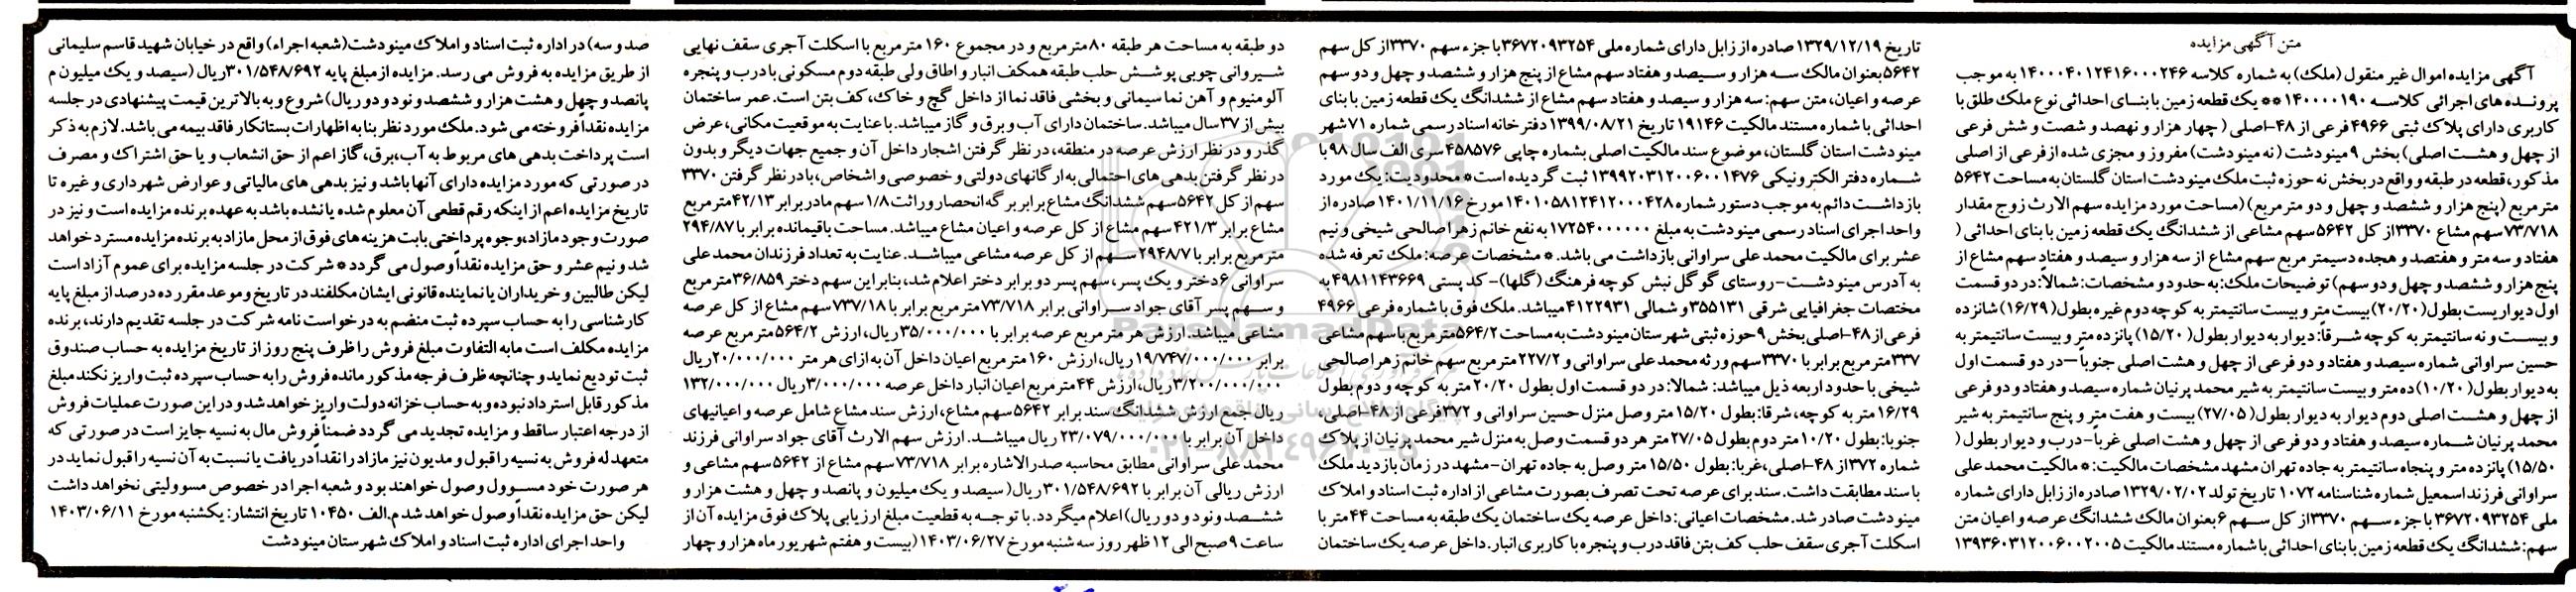 متن آگهی مزایده
آگهی مزایده اموال غیر منقول (ملک) به شماره کلاسه ۱۴۰۰۰۴۰۱۲۴۱۶۰۰۰۲۴۶ به موجب
پرونده های اجرائی کلاسه ۱۴۰۰۰۰۱۹۰ ** یک قطعه زمین با بنای احداثی نوع ملک طلق با
کاربری دارای پلاک ثبتی ۴۹۶۶ فرعی از ۴۸-اصلی ( چهار هزار و نهصد و شصت و شش فرعی
از چهل و هشت اصلی) بخش ۹ مینودشت ( نه مینودشت) مفروز و مجزی شده از فرعی از اصلی
مذکور، قطعه در طبقه و واقع در بخش نه حوزه ثبت ملک مینودشت استان گلستان به مساحت ۵۶۴۲
متر مربع (پنج هزار و ششصد و چهل و دو متر مربع) (مساحت مورد مزایده سهم الارث زوج مقدار
۷۳/۷۱۸ سهم مشاع ۳۳۷۰ از کل ۵۶۴۲ سهم مشاعی از ششدانگ یک قطعه زمین با بنای احداثی (
هفتاد و سه متر و هفتصد و هجده دسیمتر مربع سهم مشاع از سه هزار و سیصد و هفتاد سهم مشاع از
پنج هزار و ششصد و چهل و دو سهم) توضیحات ملک: به حدود و مشخصات: شمالا: در دو قسمت
اول دیواریست بطول (۲۰/۲۰) بیست متر و بیست سانتیمتر به کوچه دوم غیره بطول (۱۶/۲۹) شانزده
و بیست و نه سانتیمتر به کوچه شرقا: دیوار به دیوار بطول (۱۵/۲۰) پانزده متر و بیست سانتیمتر به
حسین سراوانی شماره سیصد و هفتاد و دو فرعی از چهل و هشت اصلی جنوبا –در دو قسمت اول
به دیوار بطول (۱۰/۲۰) ده متر و بیست سانتیمتر به شیر محمد پرنیان شماره سیصد و هفتاد و دو فرعی
از چهل و هشت اصلی دوم دیوار به دیوار بطول (۲۷/۰۵) بیست و هفت متر و پنج سانتیمتر به شیر
محمد پرنیان شماره سیصد و هفتاد و دو فرعی از چهل و هشت اصلی غربا–درب و دیوار بطول (
۱۵/۵۰) پانزده متر و پنجاه سانتیمتر به جاده تهران مشهد مشخصات مالکیت: * مالکیت محمد علی
سراوانی فرزند اسمعیل شماره شناسنامه ۱۰۷۲ تاریخ تولد ۱۳۲۹/۰۲/۰۲ صادره از زابل دارای شماره
ملی ۳۶۷۲۰۹۳۲۵۴ با جزء سهم ۳۳۷۰ از کل سهم ۶ بعنوان مالک ششدانگ عرصه و اعیان متن
سهم: ششدانگ یک قطعه زمین با بنای احداثی با شماره مستند مالکیت ۱۳۹۳۶۰۳۱۲۰۰۶۰۰۲۰۰۵
تاریخ ۱۳۲۹/۱۲/۱۹ صادره از زابل دارای شماره ملی ۳۶۷۲۰۹۳۲۵۴ با جزء سهم ۳۳۷۰ از کل سهم
۵۶۴۲ بعنوان مالک سه هزار و سیصد و هفتاد سهم مشاع از پنج هزار و ششصد و چهل و دو سهم
عرصه و اعیان، متن سهم: سه هزار و سیصد و هفتاد سهم مشاع از ششدانگ یک قطعه زمین با بنای
احداثی با شماره مستند مالکیت ۱۹۱۴۶ تاریخ ۱۳۹۹/۰۸/۲۱ دفترخانه اسناد رسمی شماره ۷۱ شهر
مینودشت استان گلستان، موضوع سند مالکیت اصلی بشماره چاپی ۴۵۸۵۷۶ سری الف سال ۹۸ با
شماره دفتر الکترونیکی ۱۳۹۹۲۰۳۱۲۰۰۶۰۰۱۴۷۶ ثبت گردیده است* محدودیت: یک مورد
بازداشت دائم به موجب دستور شماره ۱۴۰۱۰۵۸۱۲۴۱۲۰۰۰۴۲۸ مورخ ۱۴۰۱/۱۱/۱۶ صادره از
واحد اجرای اسناد رسمی مینودشت به مبلغ ۱۷۲۵۴۰۰۰۰۰۰ به نفع خانم زهرا صالحی شیخی و نیم
عشر برای مالکیت محمد علی سراوانی بازداشت می باشد. * مشخصات عرصه: ملک تعرفه شده
به آدرس مینودشت–روستای گوگل نبش کوچه فرهنگ (گلها)–کد پستی ۴۹۸۱۱۴۳۶۶۹ به
مختصات جغرافیایی شرقی ۳۵۵۱۳۱ و شمالی ۴۱۲۲۹۳۱ میباشد. ملک فوق با شماره فرعی ۴۹۶۶
فرعی از ۴۸-اصلی بخش ۹ حوزه ثبتی شهرستان مینودشت به مساحت ۵۶۴/۲ متر مربع با سهم مشاعی
۳۳۷ متر مربع برابر با ۳۳۷۰ سهم ورثه محمد علی سراوانی و ۲۲۷/۲ متر مربع سهم خانم زهرا صالحی
شیخی با حدود اربعه ذیل میباشد: شمالا: در دو قسمت اول بطول ۲۰/۲۰ متر به کوچه و دوم بطول
۱۶/۲۹ متر به کوچه، شرقا: بطول ۱۵/۲۰ متر وصل منزل حسین سراوانی و ۳۷۲ فرعی از ۴۸-اصلی،
جنوبا: بطول ۱۰/۲۰ متر دوم بطول ۲۷/۰۵ متر هر دو قسمت وصل به منزل شیر محمد پرنیان از پلاک
شماره ۳۷۲ از ۴۸-اصلی، غربا: بطول ۱۵/۵۰ متر وصل به جاده تهران–مشهد در زمان بازدید ملک
با سند مطابقت داشت. سند برای عرصه تحت تصرف بصورت مشاعی از اداره ثبت اسناد و املاک
مینودشت صادر شد. مشخصات اعیانی: داخل عرصه یک ساختمان یک طبقه به مساحت ۴۴ متر با
اسکلت آجری سقف حلب کف بتن فاقد درب و پنجره با کاربری انبار. داخل عرصه یک ساختمان
دو طبقه به مساحت هر طبقه ۸۰ متر مربع و در مجموع ۱۶۰ متر مربع با اسکلت آجری سقف نهایی
شیروانی چوبی پوشش حلب طبقه همکف انبار و اطاق ولی طبقه دوم مسکونی با درب و پنجره
آلومنیوم و آهن نما سیمانی و بخشی فاقد نما از داخل گچ و خاک، کف بتن است. عمر ساختمان
بیش از ۳۷ سال میباشد. ساختمان دارای آب و برق و گاز میباشد. با عنایت به موقعیت مکانی، عرض
گذر و در نظر ارزش عرصه در منطقه، در نظر گرفتن اشجار داخل آن و جمیع جهات دیگر و بدون
در نظر گرفتن بدهی های احتمالی به ارگانهای دولتی و خصوصی و اشخاص، با در نظر گرفتن ۳۳۷۰
سهم از کل ۵۶۴۲ سهم ششدانگ مشاع برابر برگه انحصار وراثت ۱/۸ سهم مادر برابر ۴۲/۱۳ متر مربع
مشاع برابر ۴۲۱/۳ سهم مشاع از کل عرصه و اعیان مشاع میباشد. مساحت باقیمانده برابر با ۲۹۴/۸۷
متر مربع برابر با ۲۹۴۸/۷ سهم از کل عرصه مشاعی میباشد. عنایت به تعداد فرزندان محمد علی
سراوانی ۶ دختر و یک پسر، سهم پسر دو برابر دختر اعلام شد، بنابراین سهم دختر ۳۶/۸۵۹ متر مربع
و سهم پسر آقای جواد سراوانی برابر ۷۳/۷۱۸ متر مربع برابر با ۷۳۷/۱۸ سهم مشاع از کل عرصه
مشاعی میباشد. ارزش هر متر مربع عرصه برابر با ۳۵/۰۰۰/۰۰۰ ریال، ارزش ۵۶۴/۲ متر مربع عرصه
برابر ۱۹/۷۴۷/۰۰۰/۰۰۰ ریال، ارزش ۱۶۰ متر مربع اعیان داخل آن به ازای هر متر ۲۰/۰۰۰/۰۰۰ ریال
۳/۲۰۰/۰۰۰/۰۰۰ ریال، ارزش ۴۴ متر مربع اعیان انبار داخل عرصه ۳/۰۰۰/۰۰۰ ریال ۱۳۲/۰۰۰/۰۰۰
ریال جمع ارزش ششدانگ سند برابر ۵۶۴۲ سهم مشاع، ارزش سند مشاع شامل عرصه و اعیانیهای
داخل آن برابر با ۲۳/۰۷۹/۰۰۰/۰۰۰ ریال میباشد. ارزش سهم الارث آقای جواد سراوانی فرزند
محمد علی سراوانی مطابق محاسبه صدرالاشاره برابر ۷۳/۷۱۸ سهم مشاع از ۵۶۴۲ سهم مشاعی و
ارزش ریالی آن برابر با ۳۰۱/۵۴۸/۶۹۲ ریال (سیصد و یک میلیون و پانصد و چهل و هشت هزار و
ششصد و نود و دو ریال) اعلام میگردد. با توجه به قطعیت مبلغ ارزیابی پلاک فوق مزایده آن از
ساعت ۹ صبح الی ۱۲ ظهر روز سه شنبه مورخ ۱۴۰۳/۰۶/۲۷ (بیست و هفتم شهریور ماه هزار و چهار
صد و سه) در اداره ثبت اسناد و املاک مینودشت (شعبه اجراء) واقع در خیابان شهید قاسم سلیمانی
از طریق مزایده به فروش می رسد. مزایده از مبلغ پایه ۳۰۱/۵۴۸/۶۹۲ ریال (سیصد و یک میلیون م
پانصد و چهل و هشت هزار و ششصد و نود و دو ریال) شروع و به بالاترین قیمت پیشنهادی در جلسه
مزایده نقداً فروخته می شود. ملک مورد نظر بنا به اظهارات بستانکار فاقد بیمه می باشد. لازم به ذکر
است پرداخت بدهی های مربوط به آب، برق، گاز اعم از حق انشعاب و یا حق اشتراک و مصرف
در صورتی که مورد مزایده دارای آنها باشد و نیز بدهی های مالیاتی و عوارض شهرداری و غیره تا
تاریخ مزایده اعم از اینکه رقم قطعی آن معلوم شده یا نشده باشد به عهده برنده مزایده است و نیز در
صورت وجود مازاد، وجوه پرداختی بابت هزینه های فوق از محل مازاد به برنده مزایده مسترد خواهد
شد و نیم عشر و حق مزایده نقداً وصول می گردد * شرکت در جلسه مزایده برای عموم آزاد است
لیکن طالبین و خریداران یا نماینده قانونی ایشان مکلفند در تاریخ و موعد مقرر ده درصد از مبلغ پایه
کارشناسی را به حساب سپرده ثبت منضم به درخواست نامه شرکت در جلسه تقدیم دارند، برنده
مزایده مکلف است مابه التفاوت مبلغ فروش را ظرف پنج روز از تاریخ مزایده به حساب صندوق
ثبت تودیع نماید و چنانچه ظرف فرجه مذکور مانده فروش را به حساب سپرده ثبت واریز نکند مبلغ
مذکور قابل استرداد نبوده و به حساب خزانه دولت واریز خواهد شد و در این صورت عملیات فروش
از درجه اعتبار ساقط و مزایده تجدید می گردد ضمناً فروش مال به نسیه جایز است در صورتی که
متعهد له فروش به نسیه را قبول و مدیون نیز مازاد را نقداً دریافت یا نسبت به آن نسیه را قبول نماید در
هر صورت خود مسوول وصول خواهند بود و شعبه اجرا در خصوص مسوولیتی نخواهد داشت
لیکن حق مزایده نقداً وصول خواهد شد م.الف ۱۰۴۵۰ تاریخ انتشار: یکشنبه مورخ ۱۴۰۳/۰۶/۱۱
واحد اجرای اداره ثبت اسناد و املاک شهرستان مینودشت
ParsNamadData
۰۲۱-۸۸۳۴۹۶۷۰-۵